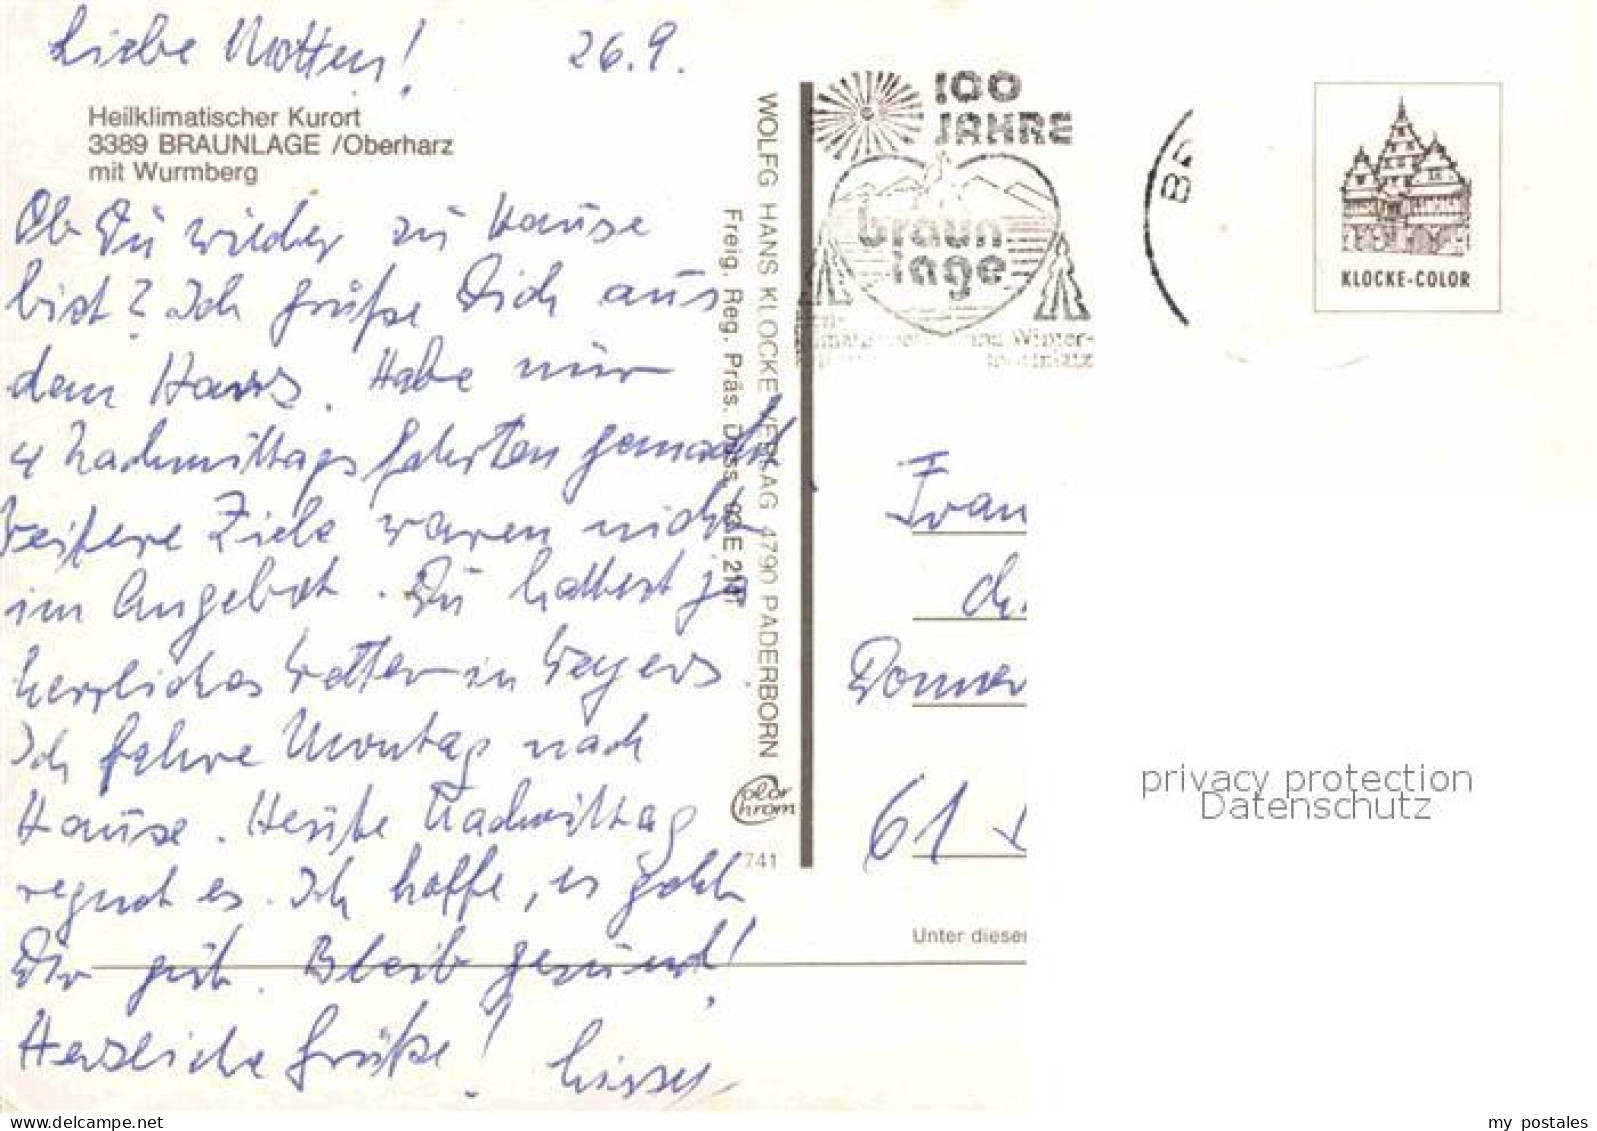 Liebe Motten! 26.9.
Heilklimatischer Kurort
3389 BRAUNLAGE /Oberharz
mit Wurmberg
Ob Du wieder zu Hause
bist? Ich grüße Dich aus
dem Harz. Habe nur
4 Nachmittagsfahrten gemacht
Weitere Ziele waren nicht
im Angebot. Du hattest ja
herrliches Wetter in
Ich fahre Montag nach
Hause. Heute Nachmittag
regnet es. Ich hoffe, es geht
Dir gut. Bleib gesund!
Herzliche Grüße!
WOLFG HANS KLOCKE VERLAG 4790 PADERBORN
Freig. Reg. Präs. Düss.
Color
Chrom
741
100
JAHRE
braun
lage
und Winter-
BR
KLOCKE-COLOR
Frau
Ch.
Donner
61
Unter dieser
privacy protection
Datenschutz
www.delcampe.net
my_postales